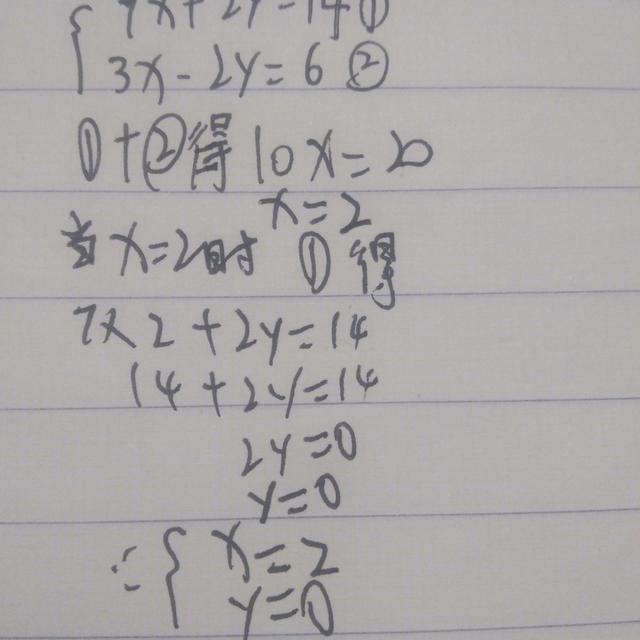 7x+2y=14①
3x-2y=6②
①+②得10x=20
x=2
当x=2时 ①得
7×2+2y=14
14+2y=14
2y=0
y=0
∴{x=2
y=0